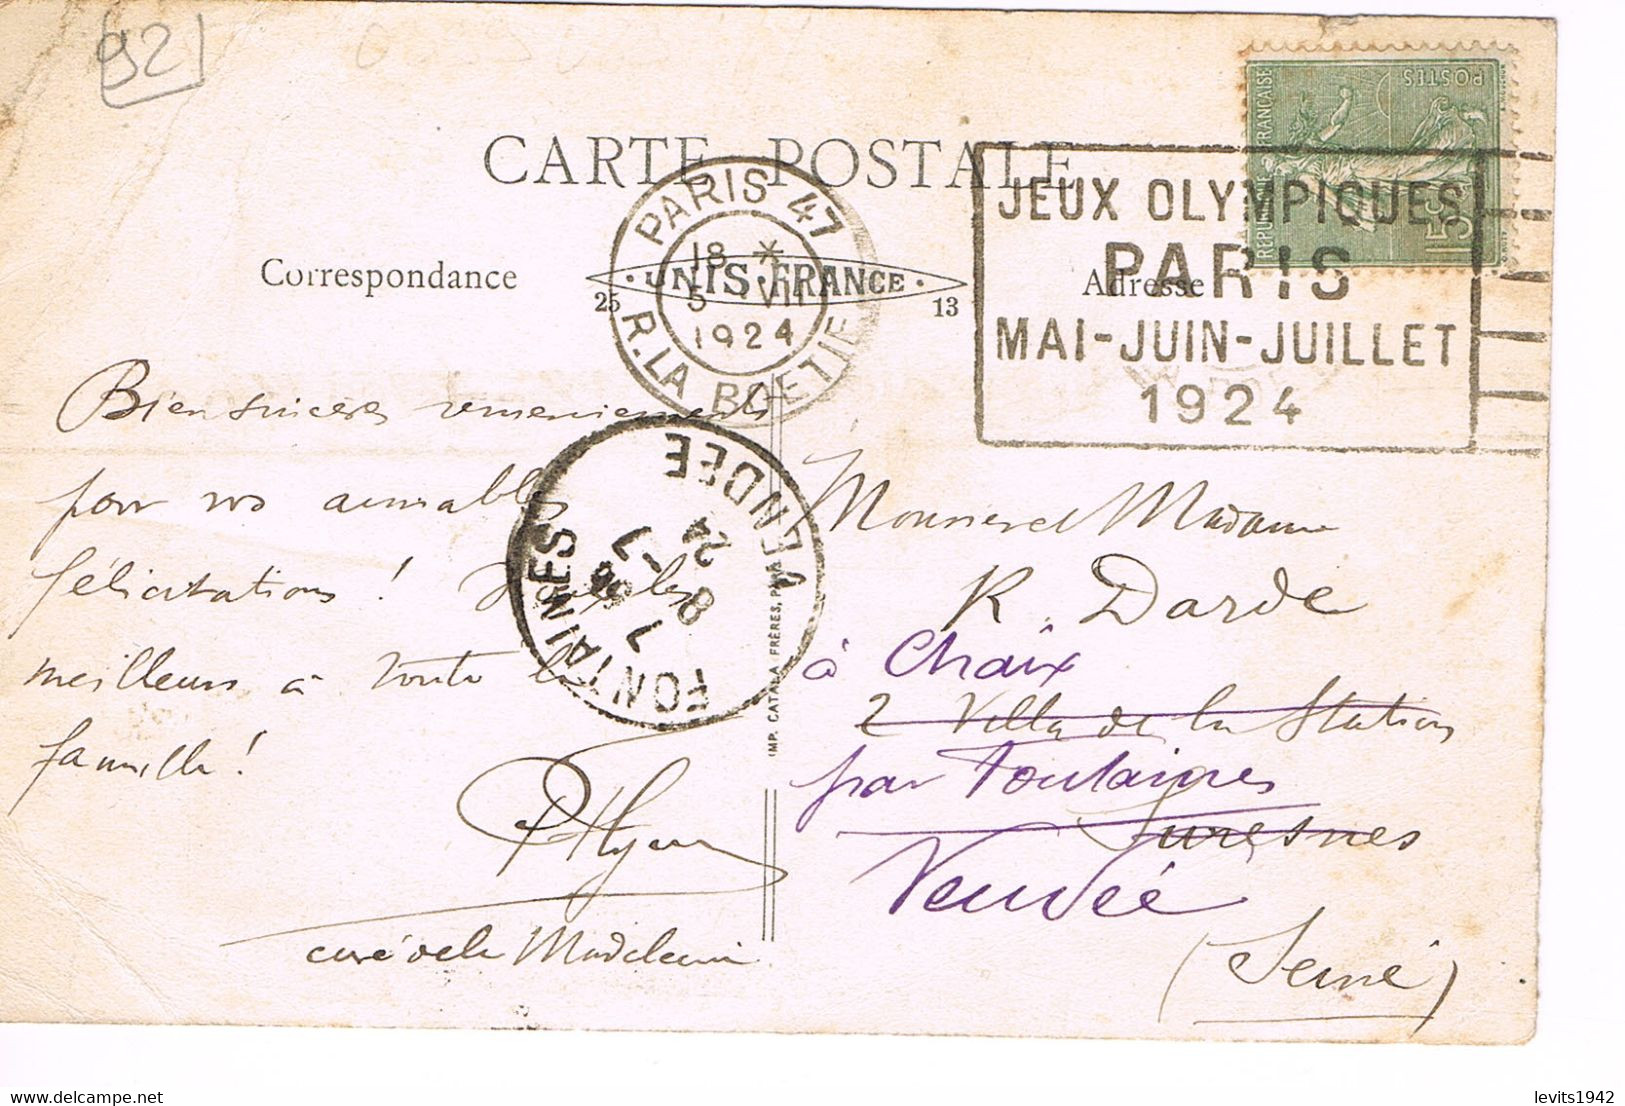 92
CARTE POSTALE
PARIS 47
18 *
5 VII
1924
R. LA BOETIE
JEUX OLYMPIQUES
PARIS
MAI-JUIN-JUILLET
1924
REPUBLIQUE FRANÇAISE
POSTES
15c
Correspondance
25 · UNIS-FRANCE · 13
Adresse
Bien sincères remerciements
pour vos aimables
félicitations !
meilleurs à toute la
famille !
curé de la Madeleine
FONTAINES
VENDÉE
7
8 -7
24
IMP. CATALA FRÈRES, PARIS
Monsieur et Madame
R. Darde
à Chaix
2 Villa de la Station
par Fontaines
Suresnes
Vendée
(Seine)
levits1942